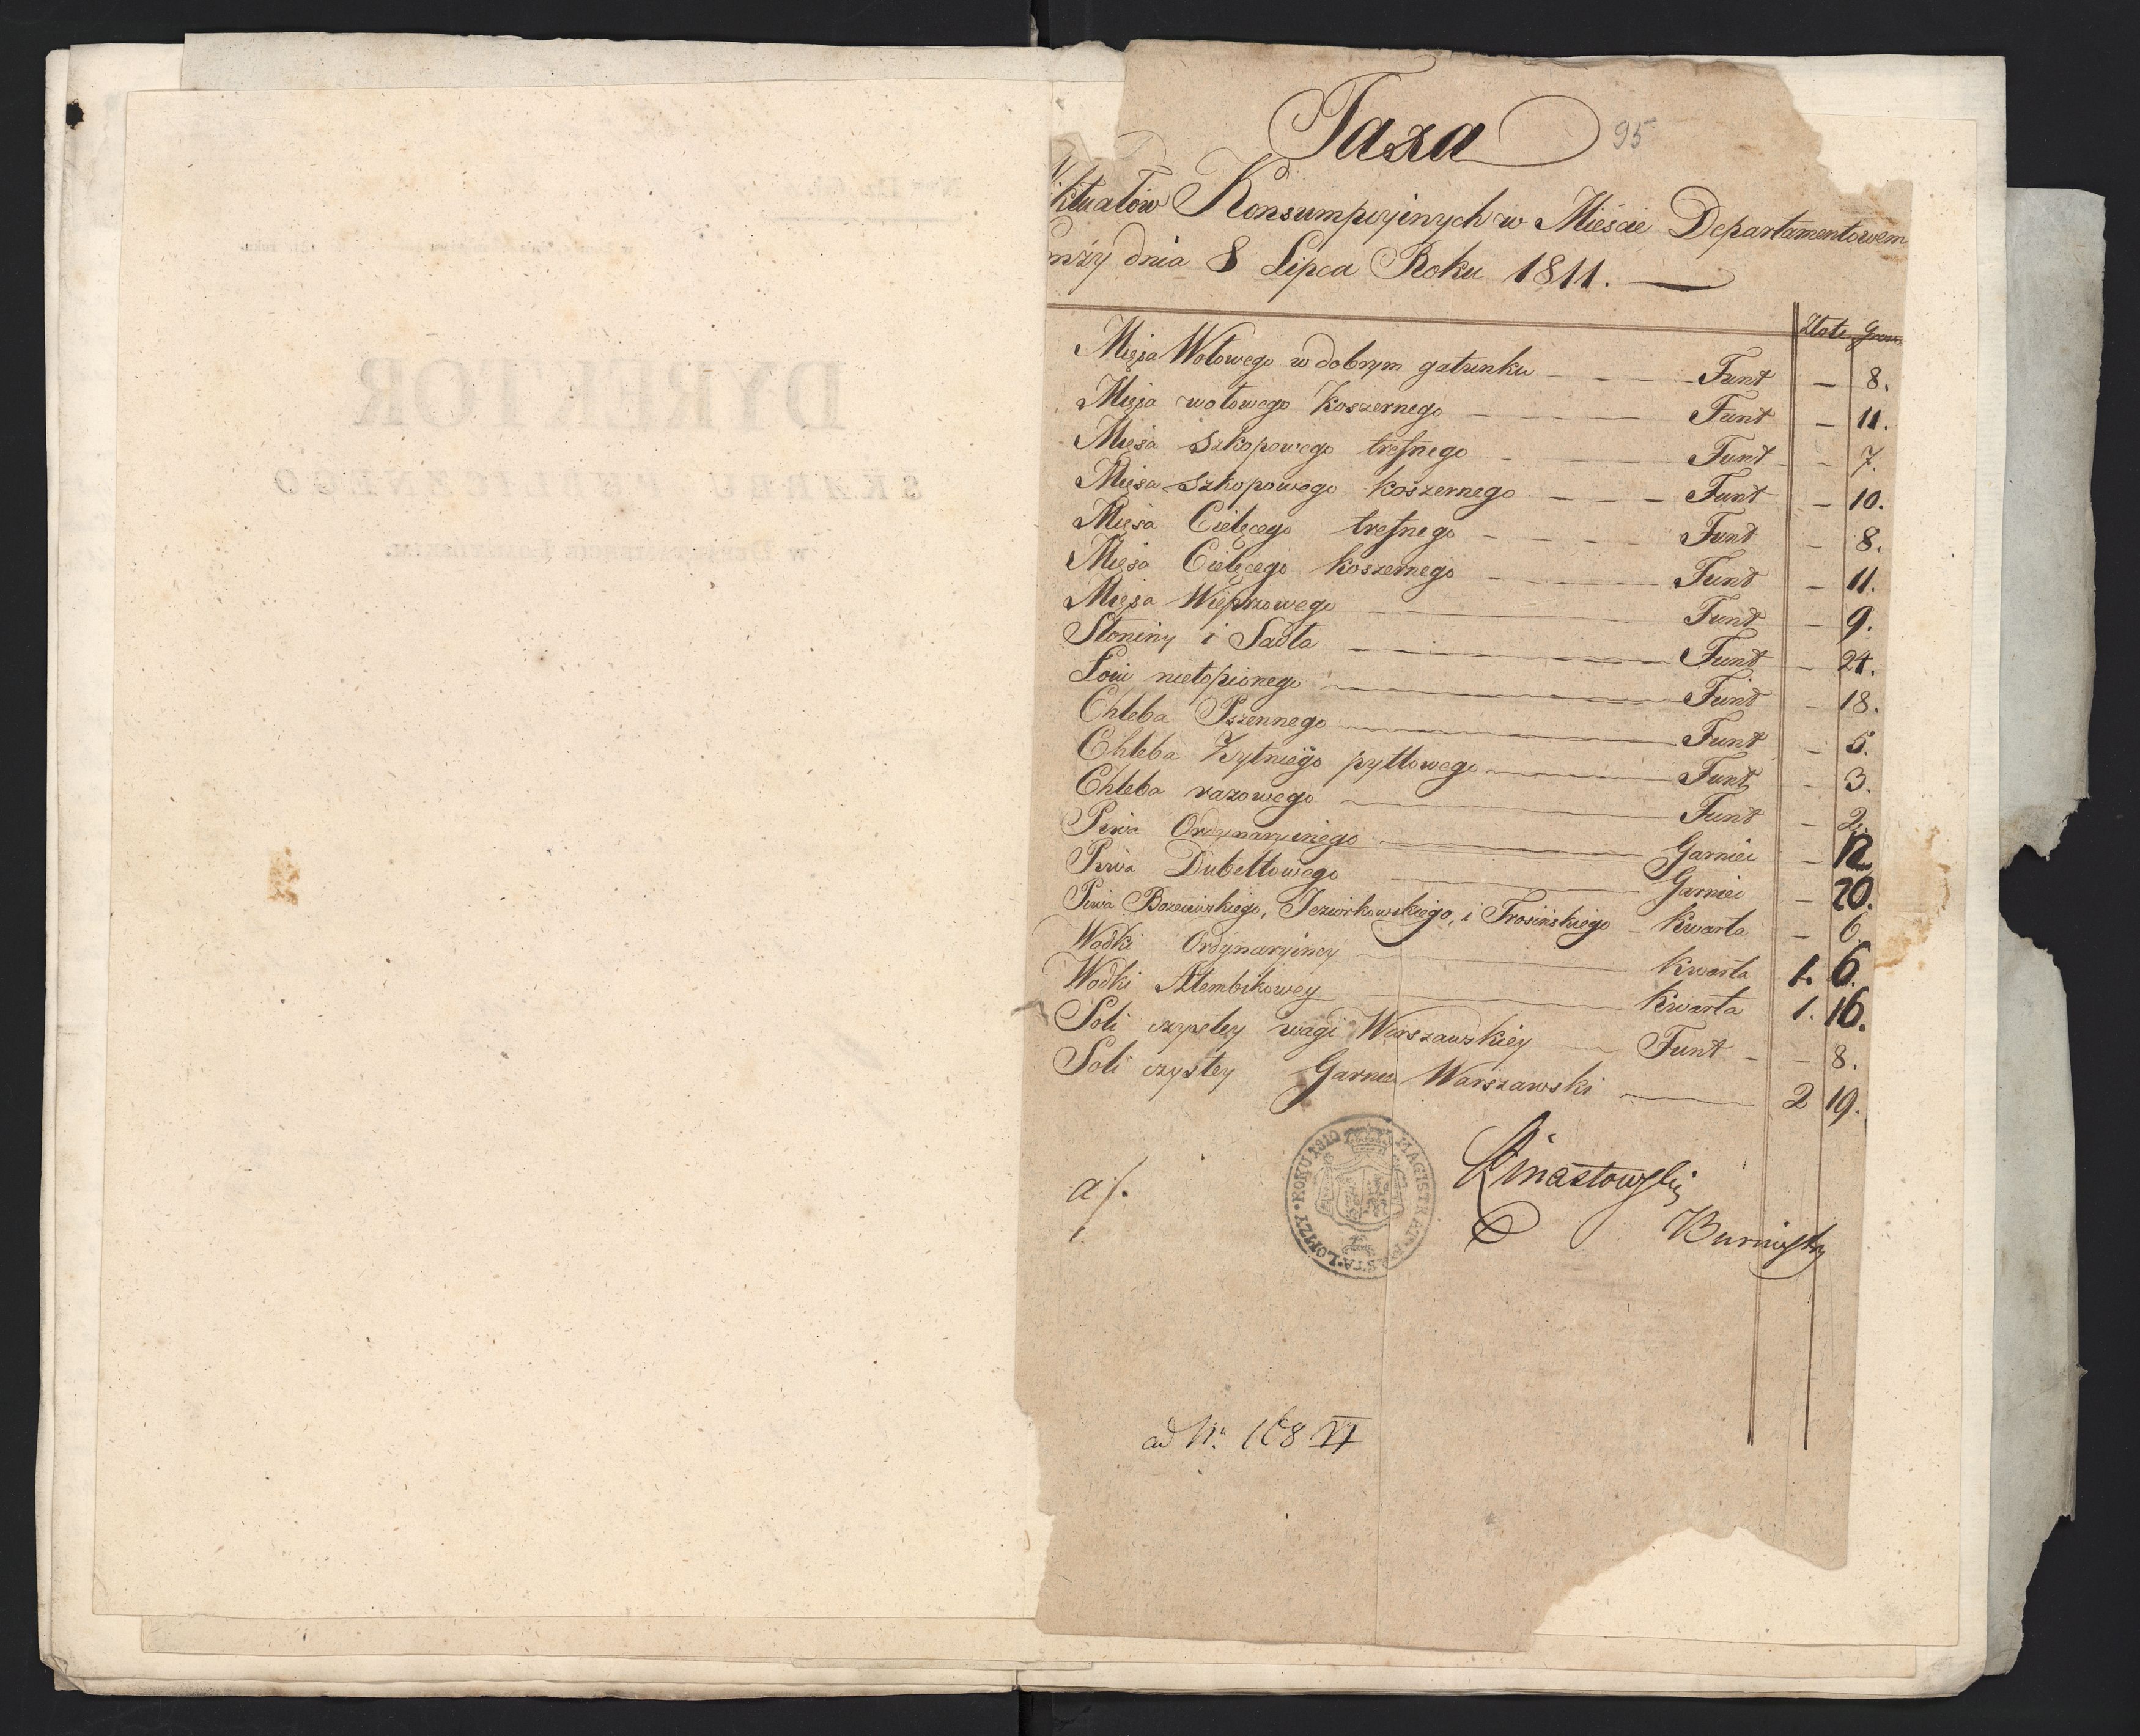 Taxa
95
Wiktuałów Konsumpcyinych w Mieście Departamentowem
mży dnia 8 Lipca Roku 1811. —
Złote Grosz
Mięsa Wołowego w dobrym gatunku — — — Funt — 8.
Mięsa wołowego Koszernego — — — Funt — 11.
Mięsa szkopowego trefnego — — Funt — 7.
Mięsa szkopowego koszernego — — — Funt — 10.
Mięsa Cielęcego trefnego — — — — Funt — 8.
Mięsa Cielęcego koszernego — — — Funt — 11.
Mięsa Wieprzowego — — — Funt — 9.
Słoniny i Sadła — — — Funt — 24.
Łoiu nietopionego — — — Funt — 18.
Chleba Pszennego — — — Funt — 5.
Chleba Żytniego pytlowego — — — Funt — 3.
Chleba razowego — — — Funt — 2.
Piwa Ordynaryinego — — — Garniec — 12
Piwa Dubeltowego — — — Garniec — 20.
Piwa i Trosińskiego — Kwarta — 6.
Wodki Ordynaryiney — — — Kwarta 1. 6.
Wodki Alembikowey — — — Kwarta 1. 16.
Soli czystey wagi Warszawskiey — Funt — — 8.
Soli czystey Garniec Warszawski — — 2 19.
MAGISTRAT MIASTA ŁOMZY ROKU 1810
a/.
Burmistrz
ad Nr. 168 VI
DYREKTOR
SKARBU PUBLICZNEGO